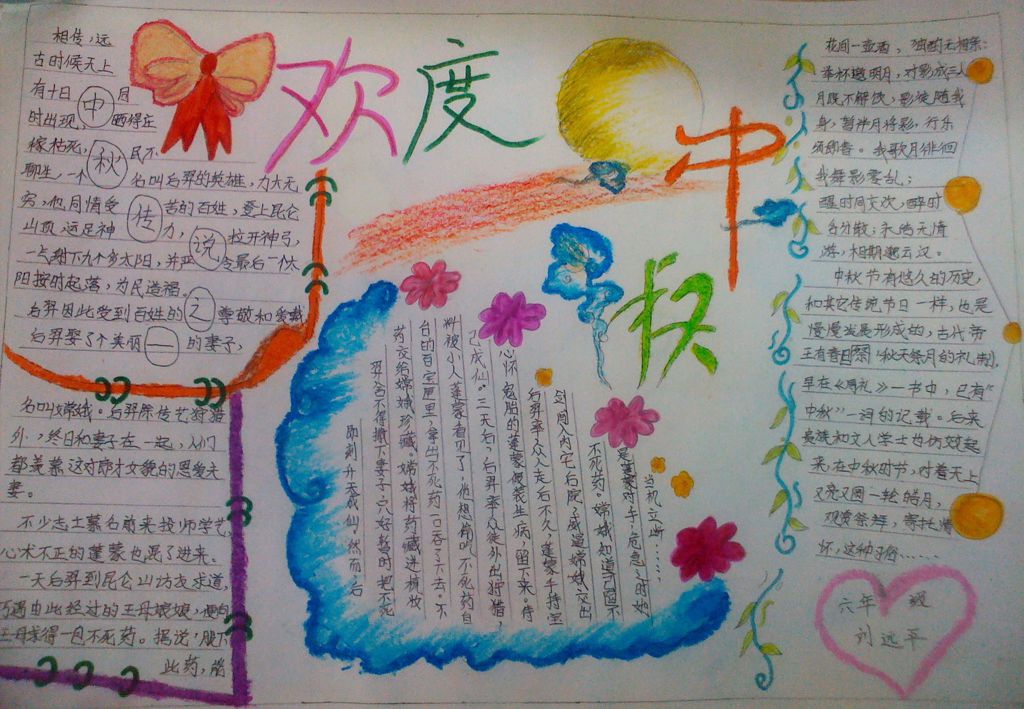 欢度中秋
相传，远
古时候天上
有十日 中 同
时出现， 晒得庄
稼枯死， 秋 民不
聊生，一个 名叫后羿的英雄，力大无
穷，他同情受 传 苦的百姓，登上昆仑
山顶，运足神 力， 说 拉开神弓，
一气射下九个多太阳，并严 令最后一个太
阳按时起落，为民造福。
后羿因此受到百姓的 之 尊敬和爱戴
后羿娶了个美丽 一 的妻子，
名叫嫦娥。后羿除传艺狩猎
外，终日和妻子在一起，人们
都羡慕这对郎才女貌的恩爱夫
妻。
不少志士慕名前来投师学艺，
心术不正的蓬蒙也混了进来。
一天后羿到昆仑山访友求道，
巧遇由此经过的王母娘娘，便向
王母求得一包不死药。据说，服下
此药，能
即刻升天成仙，然而，后
羿舍不得撇下妻子，只好暂时把不死
药交给嫦娥珍藏。嫦娥将药藏进梳妆
台的百宝匣里，
料被小人蓬蒙看见了，他想偷吃不死药自
己成仙。三天后，后羿率众徒外出狩猎，
心怀鬼胎的蓬蒙假装生病，留下来。待
后羿率众人走后不久，蓬蒙手持宝
剑闯入内宅后院，威逼嫦娥交出
不死药。嫦娥知道自己不
是蓬蒙对手，危急之时她
当机立断……
花间一壶酒，独酌无相亲；
举杯邀明月，对影成三人
月既不解饮，影徒随我
身，暂伴月将影，行乐
须及春。我歌月徘徊
我舞影零乱；
醒时同交欢，醉时
各分散；永结无情
游，相期邈云汉。
中秋节有悠久的历史，
和其它传统节日一样，也是
慢慢发展形成的，古代帝
王有春日祭，秋天祭月的礼制，
早在《周礼》一书中，已有“
中秋”一词的记载。后来
贵族和文人学士也仿效起
来，在中秋时节，对着天上
又亮又圆一轮皓月，
观赏祭拜，寄托情
怀，这种习俗……
六年 一 级
刘远平